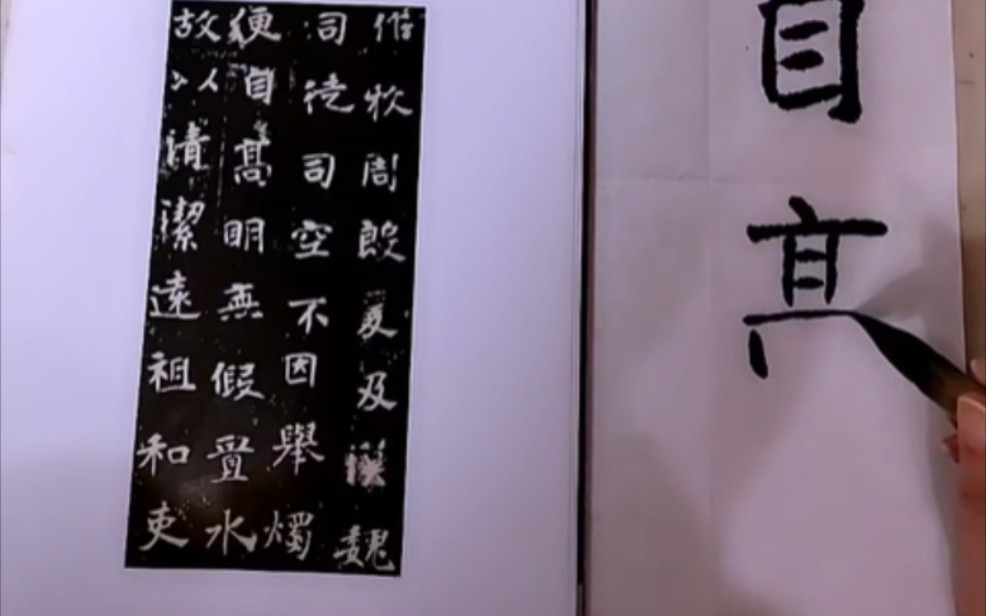 作牧周殷爰及漢魏
司徒司空不因舉燭
便自髙明無假置水
故以清潔遠祖和吏
自
髙